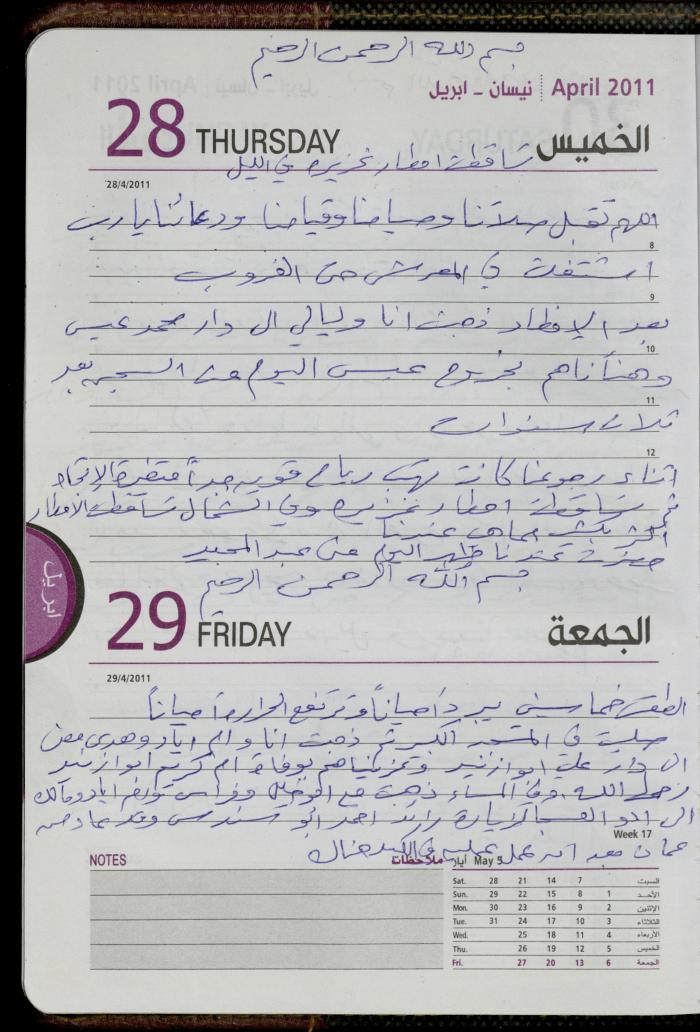 بسم الله الرحمن الرحيم
April 2011 نيسان - ابريل
28 THURSDAY الخميس
تساقطت امطار غزيره في الليل
28/4/2011
اللهم تقبل صلاتنا وصيامنا وقيامنا ودعائنا يا رب
8
اشتغلت في المعرش حتى الغروب
9
بعد الإفطار ذهبت انا وليالي الى دار محمد عيسى
10
وهنأناهم بخروج عيسى اليوم من السجن بعد
11
ثلاث سنوات
12
اثناء رجوعنا كانت تهب رياح قويه جداً متغيرة الإتجاه
ثم تساقطت امطار غزيره وفي الشمال تساقطت الأمطار
اكثر بكثير مما هي عندنا
حضرت عندنا ظهر اليوم منى عبد المجيد
بسم الله الرحمن الرحيم
29 FRIDAY الجمعة
29/4/2011
الطقس خماسيني يبرد احياناً وترتفع الحراره احياناً
صليت في المسجد الكبير ثم ذهبت انا وام اياد وهدى
الى دار علي ابو ازنيد وعزيناهم بوفاة ام كريم ابو ازنيد
رحمها الله. وفي المساء ذهبت مع ابو خليل وفراس
الى لزيارة رائد احمد ابو سندس وقد عاد من
Week 17
عمان بعد ان عمل عمليه في الكبد هناك
NOTES ملاحظات
أيار May 5
Sat. 28 21 14 7 السبت
Sun. 29 22 15 8 1 الأحد
Mon. 30 23 16 9 2 الإثنين
Tue. 31 24 17 10 3 الثلاثاء
Wed. 25 18 11 4 الأربعاء
Thu. 26 19 12 5 الخميس
Fri. 27 20 13 6 الجمعة
ابريل